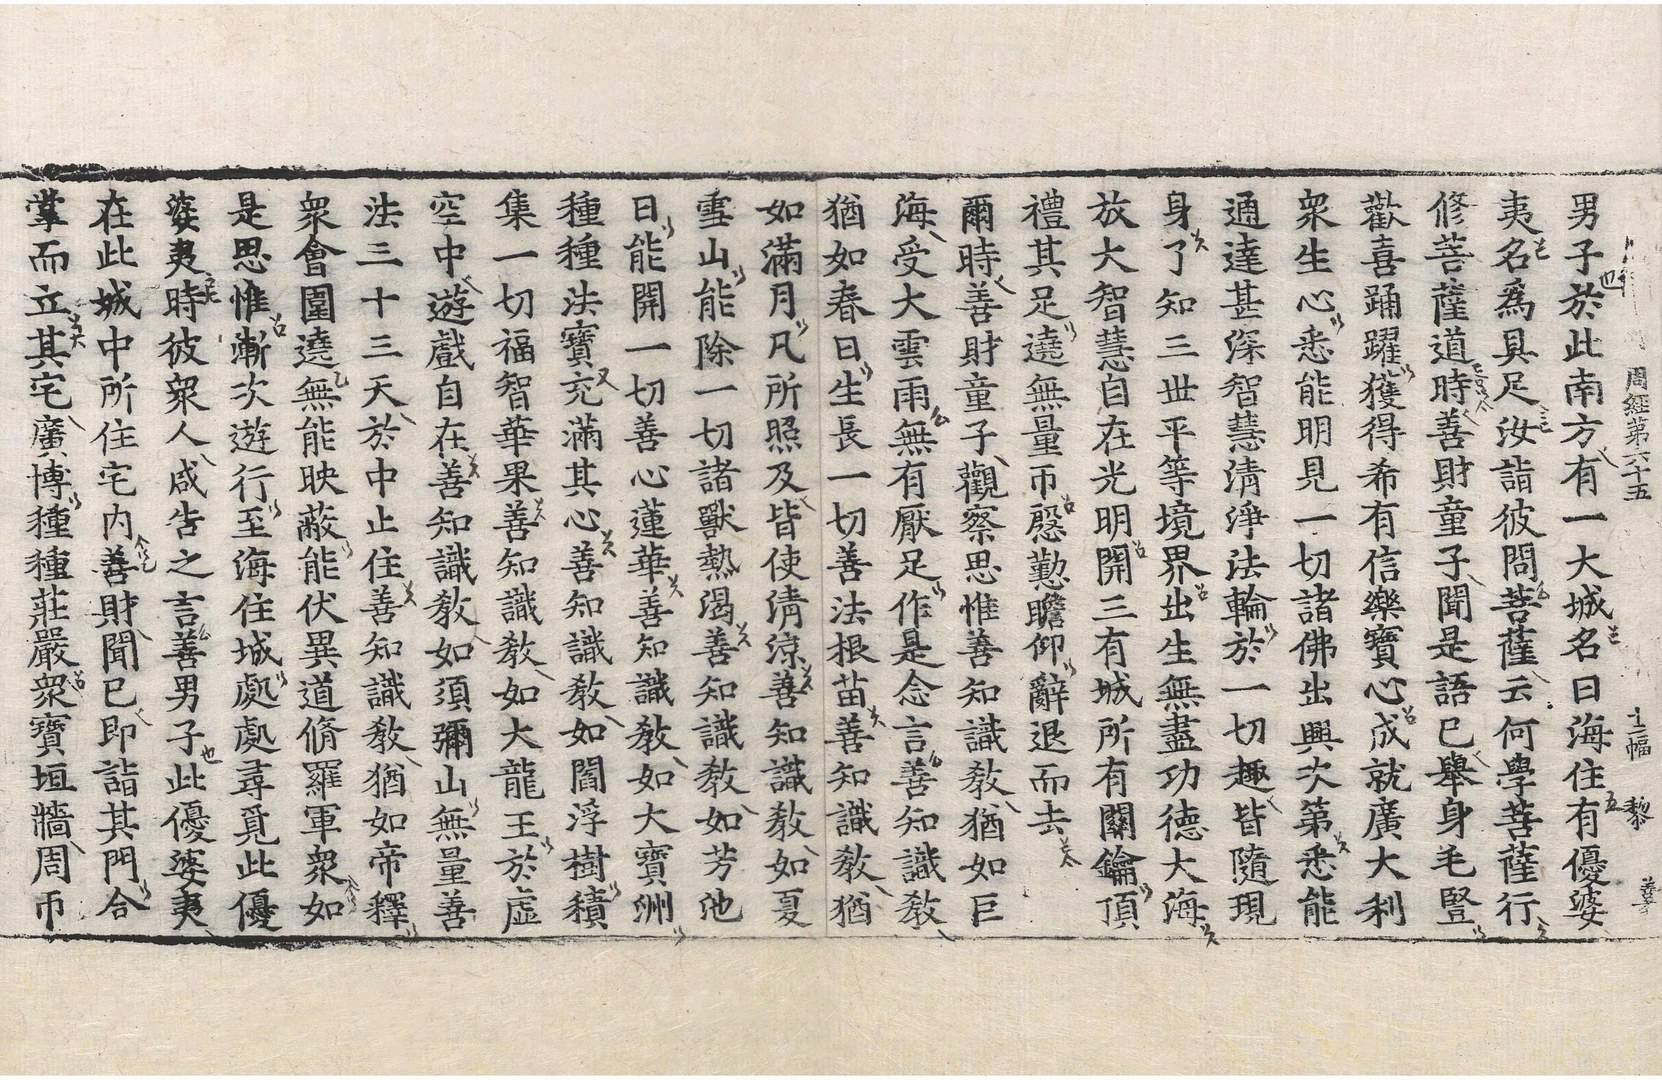 周經第六十五 十二幅 黎
男子於此南方有一大城名曰海住有優婆
夷名爲具足汝詣彼問菩薩云何學菩薩行
修菩薩道時善財童子聞是語已舉身毛豎
歡喜踊躍獲得希有信樂寶心成就廣大利
衆生心悉能明見一切諸佛出興次第悉能
通達甚深智慧清淨法輪於一切趣皆隨現
身了知三世平等境界出生無盡功德大海
放大智慧自在光明開三有城所有關鑰頂
禮其足遶無量帀慇懃瞻仰辭退而去
爾時善財童子觀察思惟善知識敎猶如巨
海受大雲雨無有厭足作是念言善知識敎
猶如春日生長一切善法根苗善知識敎猶
如滿月凡所照及皆使清涼善知識敎如夏
雪山能除一切諸獸熱渴善知識敎如芳池
日能開一切善心蓮華善知識敎如大寶洲
種種法寶充滿其心善知識敎如閻浮樹積
集一切福智華果善知識敎如大龍王於虛
空中遊戲自在善知識敎如須彌山無量善
法三十三天於中止住善知識敎猶如帝釋
衆會圍遶無能映蔽能伏異道脩羅軍衆如
是思惟漸次遊行至海住城處處尋覓此優
婆夷時彼衆人咸告之言善男子此優婆夷
在此城中所住宅內善財聞已即詣其門合
掌而立其宅廣博種種莊嚴衆寶垣牆周帀